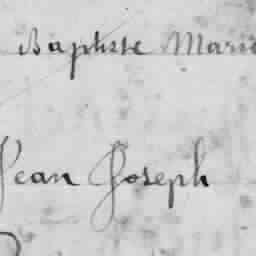 Baptiste Marie
Jean Joseph